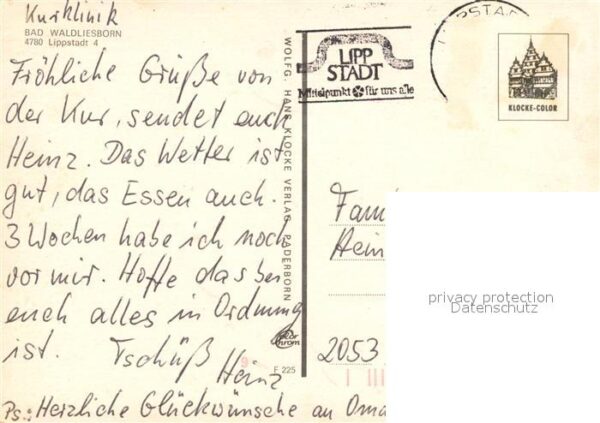 Kurklinik
BAD WALDLIESBORN
4780 Lippstadt 4
Fröhliche Grüße von
der Kur, sendet euch
Heinz. Das Wetter ist
gut, das Essen auch.
3 Wochen habe ich noch
vor mir. Hoffe das bei
euch alles in Ordnung
ist. Tschüß
Heinz
Ps.: Herzliche Glückwünsche an Oma
WOLFG. HANS KLOCKE VERLAG PADERBORN
F 225
LIPP
STADT
Mittelpunkt für uns alle
LIPPSTA
KLOCKE-COLOR
Fami
Hein
2053
privacy protection
Datenschutz